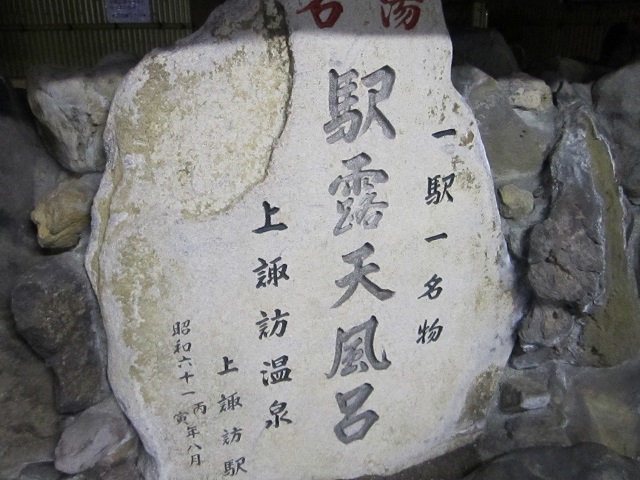 一駅一名物
駅露天風呂
上諏訪温泉
上諏訪駅
昭和六十一丙寅年八月